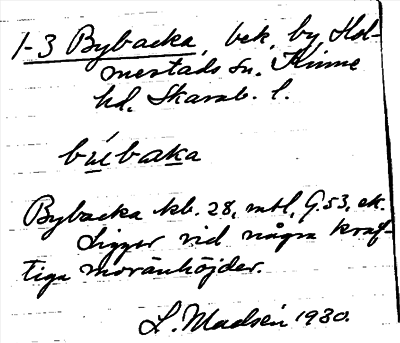 1-3 Bybacka, bek. by Hol-
mestads sn. Kinne
hd. Skarab. l.
bú̲baka̲
Bybacka kb. 28, mtl, G.53, ek.
Ligger vid några kraf-
tiga moränhöjder.
L. Madsén 1930.